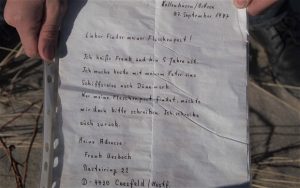 07. September 1987
Lieber Finder meiner Flaschenpost!
Ich heiße Frank und bin 5 Jahre alt.
Ich mache heute mit meinem Vater eine
Schiffsreise nach Dänemark.
Wer meine Flaschenpost findet, möchte
mir doch bitte schreiben. Ich schreibe
auch zurück.
Meine Adresse
Frank Uesbeck
D - 4420 Coesfeld / Westf.